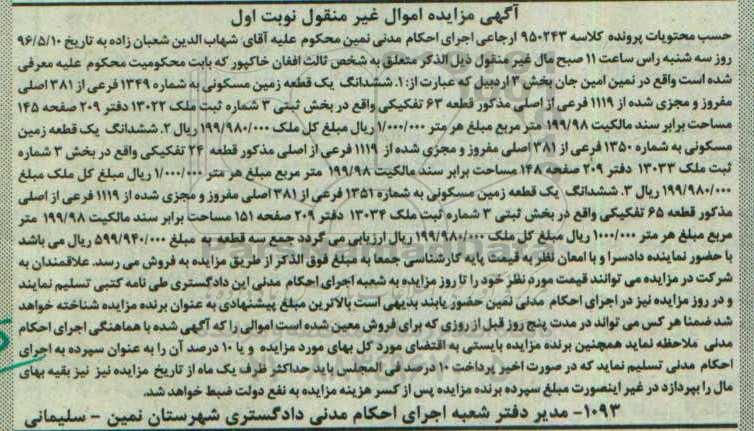 آگهی مزایده اموال غیر منقول نوبت اول
حسب محتویات پرونده کلاسه ۹۵۰۲۴۳ ارجاعی اجرای احکام مدنی نمین محکوم علیه آقای شهاب الدین شعبان زاده به تاریخ ۹۶/۵/۱۰
روز سه شنبه راس ساعت ۱۱ صبح مال غیر منقول ذیل الذکر متعلق به شخص ثالث افغان خاکپور که بابت محکومیت محکوم علیه معرفی
شده است واقع در نمین امین جان بخش ۳ اردبیل که عبارت از: ۱. ششدانگ یک قطعه زمین مسکونی به شماره ۱۳۴۹ فرعی از ۳۸۱ اصلی
مفروز و مجزی شده از ۱۱۱۹ فرعی از اصلی مذکور قطعه ۶۳ تفکیکی واقع در بخش ثبتی ۳ شماره ثبت ملک ۱۳۰۲۲ دفتر ۲۰۹ صفحه ۱۴۵
مساحت برابر سند مالکیت ۱۹۹/۹۸ متر مربع مبلغ هر متر ۱/۰۰۰/۰۰۰ ریال مبلغ کل ملک ۱۹۹/۹۸۰/۰۰۰ ریال ۲. ششدانگ یک قطعه زمین
مسکونی به شماره ۱۳۵۰ فرعی از ۳۸۱ اصلی مفروز و مجزی شده از ۱۱۱۹ فرعی از اصلی مذکور قطعه ۲۴ تفکیکی واقع در بخش ۳ شماره
ثبت ملک ۱۳۰۳۳ دفتر ۲۰۹ صفحه ۱۴۸ مساحت برابر سند مالکیت ۱۹۹/۹۸ متر مربع مبلغ هر متر ۱/۰۰۰/۰۰۰ ریال مبلغ کل ملک مبلغ
۱۹۹/۹۸۰/۰۰۰ ریال ۳. ششدانگ یک قطعه زمین مسکونی به شماره ۱۳۵۱ فرعی از ۳۸۱ اصلی مفروز و مجزی شده از ۱۱۱۹ فرعی از اصلی
مذکور قطعه ۶۵ تفکیکی واقع در بخش ثبتی ۳ شماره ثبت ملک ۱۳۰۳۴ دفتر ۲۰۹ صفحه ۱۵۱ مساحت برابر سند مالکیت ۱۹۹/۹۸ متر
مربع مبلغ هر متر ۱/۰۰۰/۰۰۰ ریال مبلغ کل ملک ۱۹۹/۹۸۰/۰۰۰ ریال ارزیابی می گردد جمع سه قطعه به مبلغ ۵۹۹/۹۴۰/۰۰۰ ریال می باشد
با حضور نماینده دادسرا و با امعان نظر به قیمت پایه کارشناسی جمعا به مبلغ فوق الذکر از طریق مزایده به فروش می رسد. علاقمندان به
شرکت در مزایده می توانند قیمت مورد نظر خود را تا روز مزایده به شعبه اجرای احکام مدنی این دادگستری طی نامه کتبی تسلیم نمایند
و در روز مزایده نیز در اجرای احکام مدنی نمین حضور یابند بدیهی است بالاترین مبلغ پیشنهادی به عنوان برنده مزایده شناخته خواهد
شد ضمنا هر کس می تواند در مدت پنج روز قبل از روزی که برای فروش معین شده است اموالی را که آگهی شده با هماهنگی اجرای احکام
مدنی ملاحظه نماید همچنین برنده مزایده بایستی به اقتضای مورد کل بهای مورد مزایده و یا ۱۰ درصد آن را به عنوان سپرده به اجرای
احکام مدنی تسلیم نماید که در صورت اخیر پرداخت ۱۰ درصد فی المجلس باید حداکثر ظرف یک ماه از تاریخ مزایده نیز نیز بقیه بهای
مال را بپردازد در غیر اینصورت مبلغ سپرده برنده مزایده پس از کسر هزینه مزایده به نفع دولت ضبط خواهد شد.
۱۰۹۳- مدیر دفتر شعبه اجرای احکام مدنی دادگستری شهرستان نمین - سلیمانی